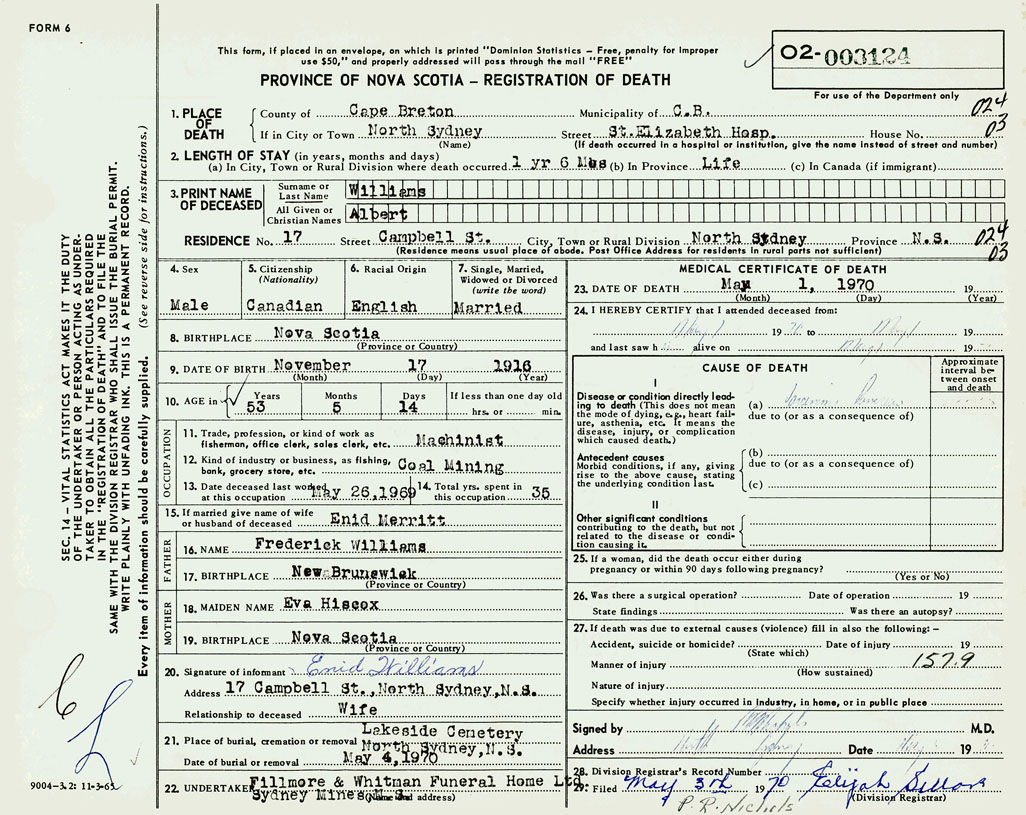 FORM 6
This form, if placed in an envelope, on which is printed "Dominion Statistics – Free, penalty for improper
use $50," and properly addressed will pass through the mail "FREE"
O2-003124
For use of the Department only
PROVINCE OF NOVA SCOTIA – REGISTRATION OF DEATH
1. PLACE OF DEATH
County of Cape Breton Municipality of C.B. 024
If in City or Town North Sydney Street St.Elizabeth Hosp. House No. 03
(Name) (If death occurred in a hospital or institution, give the name instead of street and number)
2. LENGTH OF STAY (in years, months and days)
(a) In City, Town or Rural Division where death occurred 1 yr 6 Mos (b) In Province Life (c) In Canada (if immigrant)
3. PRINT NAME OF DECEASED
Surname or Last Name Williams
All Given or Christian Names Albert
RESIDENCE No. 17 Street Campbell St. City, Town or Rural Division North Sydney Province N.S. 024
(Residence means usual place of abode. Post Office Address for residents in rural parts not sufficient) 03
4. Sex
Male
5. Citizenship
(Nationality)
Canadian
6. Racial Origin
English
7. Single, Married,
Widowed or Divorced
(write the word)
Married
8. BIRTHPLACE Nova Scotia
(Province or Country)
9. DATE OF BIRTH November 17 1916
(Month) (Day) (Year)
10. AGE in Years Months Days If less than one day old
53 5 14 hrs. or min.
OCCUPATION
11. Trade, profession, or kind of work as
fisherman, office clerk, sales clerk, etc. Machinist
12. Kind of industry or business, as fishing,
bank, grocery store, etc. Coal Mining
13. Date deceased last worked
at this occupation May 26,1969
14. Total yrs. spent in
this occupation 35
15. If married give name of wife
or husband of deceased Enid Merritt
FATHER
16. NAME Frederick Williams
17. BIRTHPLACE New Brunswick
(Province or Country)
MOTHER
18. MAIDEN NAME Eva Hiscox
19. BIRTHPLACE Nova Scotia
(Province or Country)
20. Signature of informant Enid Williams
Address 17 Campbell St.,North Sydney,N.S.
Relationship to deceased Wife
21. Place of burial, cremation or removal Lakeside Cemetery
North Sydney,N.S.
Date of burial or removal May 4,1970
22. UNDERTAKER Fillmore & Whitman Funeral Home Ltd.
Sydney Mines N.S.
(Name and address)
MEDICAL CERTIFICATE OF DEATH
23. DATE OF DEATH May 1, 1970 19
(Month) (Day) (Year)
24. I HEREBY CERTIFY that I attended deceased from:
1970 to 19
and last saw h alive on 19
CAUSE OF DEATH
Approximate
interval be-
tween onset
and death
I
Disease or condition directly lead-
ing to death (This does not mean
the mode of dying, e.g., heart fail-
ure, asthenia, etc. It means the
disease, injury, or complication
which caused death.)
(a)
due to (or as a consequence of)
Antecedent causes
Morbid conditions, if any, giving
rise to the above cause, stating
the underlying condition last.
(b)
due to (or as a consequence of)
(c)
II
Other significant conditions
contributing to the death, but not
related to the disease or condi-
tion causing it.
25. If a woman, did the death occur either during
pregnancy or within 90 days following pregnancy?
(Yes or No)
26. Was there a surgical operation? Date of operation 19
State findings Was there an autopsy?
27. If death was due to external causes (violence) fill in also the following: –
Accident, suicide or homicide? Date of injury 19
(State which)
Manner of injury 157.9
(How sustained)
Nature of injury
Specify whether injury occurred in Industry, in home, or in public place
Signed by M.D.
Address North Sydney Date 19
28. Division Registrar's Record Number
29. Filed May 3rd 1970 Elijah
(Division Registrar)
P. R. Nichols
SEC. 14 – VITAL STATISTICS ACT MAKES IT THE DUTY
OF THE UNDERTAKER OR PERSON ACTING AS UNDER-
TAKER TO OBTAIN ALL THE PARTICULARS REQUIRED
IN THE "REGISTRATION OF DEATH" AND TO FILE THE
SAME WITH THE DIVISION REGISTRAR WHO SHALL ISSUE THE BURIAL PERMIT.
WRITE PLAINLY WITH UNFADING INK. THIS IS A PERMANENT RECORD.
Every item of information should be carefully supplied. (See reverse side for instructions.)
9004–3.2: 11-3-65